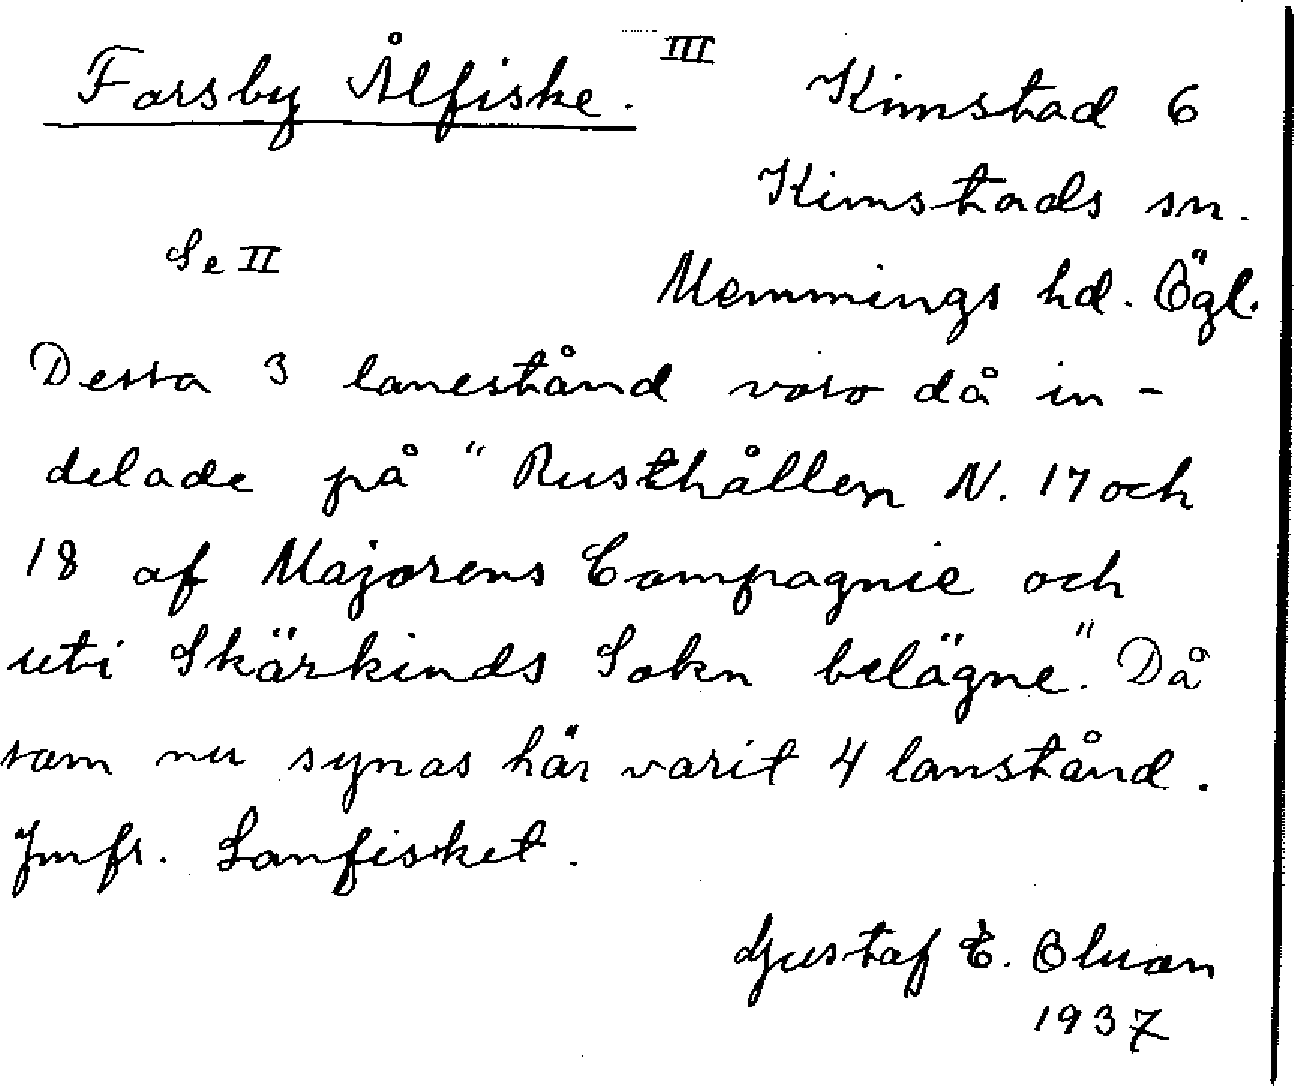 Forsby Ålfiske. III Kimstad 6
Kimstads sn.
Se II Memmings hd. Ögl.
Dessa 3 lanestånd voro då in-
delade på "Rusthållen N. 17 och
18 af Majorens Compagnie och
uti Skärkinds Sokn belägne." Då
som nu synas här varit 4 lanstånd.
Jmfr. Lanfisket.
Gustaf E.
1937